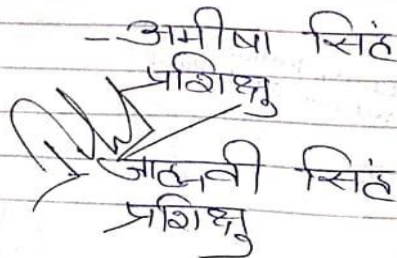 - अमीषा सिंह
प्रशिक्षु
जाह्नवी सिंह
प्रशिक्षु